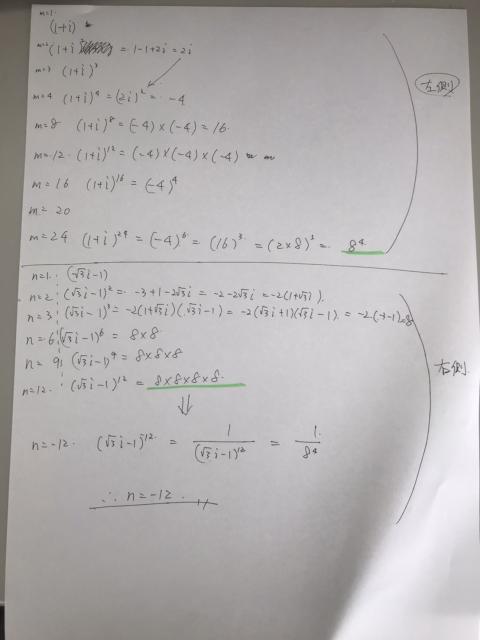 m=1.
(1+i)
m=2 (1+i)² = 1-1+2i = 2i
m=3 (1+i)³
m=4 (1+i)⁴ = (2i)² = -4
左側
m=8 (1+i)⁸ = (-4)×(-4) = 16.
m=12. (1+i)¹² = (-4)×(-4)×(-4)
m=16 (1+i)¹⁶ = (-4)⁴
m=20
m=24 (1+i)²⁴ = (-4)⁶ = (16)³ = (2×8)³ = 8⁴.
n=1. (√3i-1)
n=2. (√3i-1)² = -3+1-2√3i = -2-2√3i = -2(1+√3i).
n=3. (√3i-1)³ = -2(1+√3i)(√3i-1) = -2(√3i+1)(√3i-1). = -2(-3-1)=8
n=6 (√3i-1)⁶ = 8×8
n=9 (√3i-1)⁹ = 8×8×8
右側
n=12. (√3i-1)¹² = 8×8×8×8.
⇓
n=-12. (√3i-1)¹² = 1/(√3i-1)¹² = 1/8⁴
∴ n=-12.